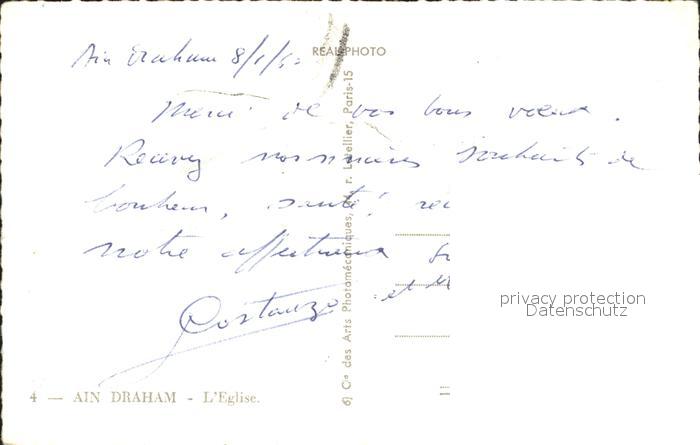 Ain Draham 8/1/5
REAL PHOTO
Merci de vos bons voeux.
Recevez nos sincères souhaits de
bonheur, santé!
notre affectueux
Costanzo et
privacy protection
Datenschutz
6) Cie des Arts Photomécaniques, r. Letellier, Paris-15
4 — AIN DRAHAM - L'Eglise.